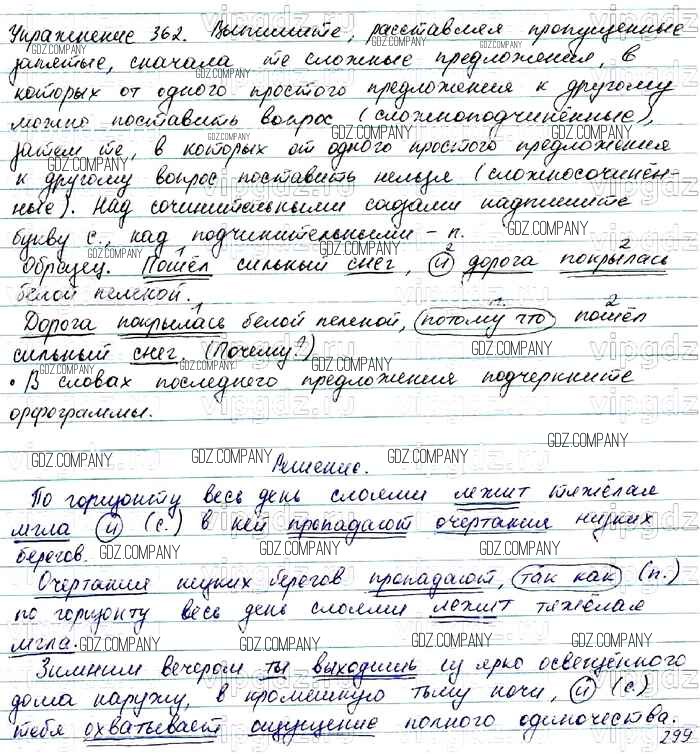 Упражнение 362. Выпишите, расставляя пропущенные
запятые, сначала те сложные предложения, в
которых от одного простого предложения к другому
можно поставить вопрос (сложноподчинённые),
затем те, в которых от одного простого предложения
к другому вопрос поставить нельзя (сложносочинён-
ные). Над сочинительными союзами надпишите
букву с., над подчинительными - п.
Образец. Пошёл сильный снег, и дорога покрылась
белой пеленой.
Дорога покрылась белой пеленой, потому что пошёл
сильный снег. (Почему?)
• В словах последнего предложения подчеркните
орфограммы.
Решение.
По горизонту весь день слоями лежит тяжёлая
мгла и (с.) в ней пропадают очертания низких
берегов.
Очертания низких берегов пропадают, так как (п.)
по горизонту весь день слоями лежит тяжёлая
мгла.
Зимним вечером ты выходишь из ярко освещённого
дома наружу, в кромешную тьму ночи, и (с.)
тебя охватывает ощущение полного одиночества.
299